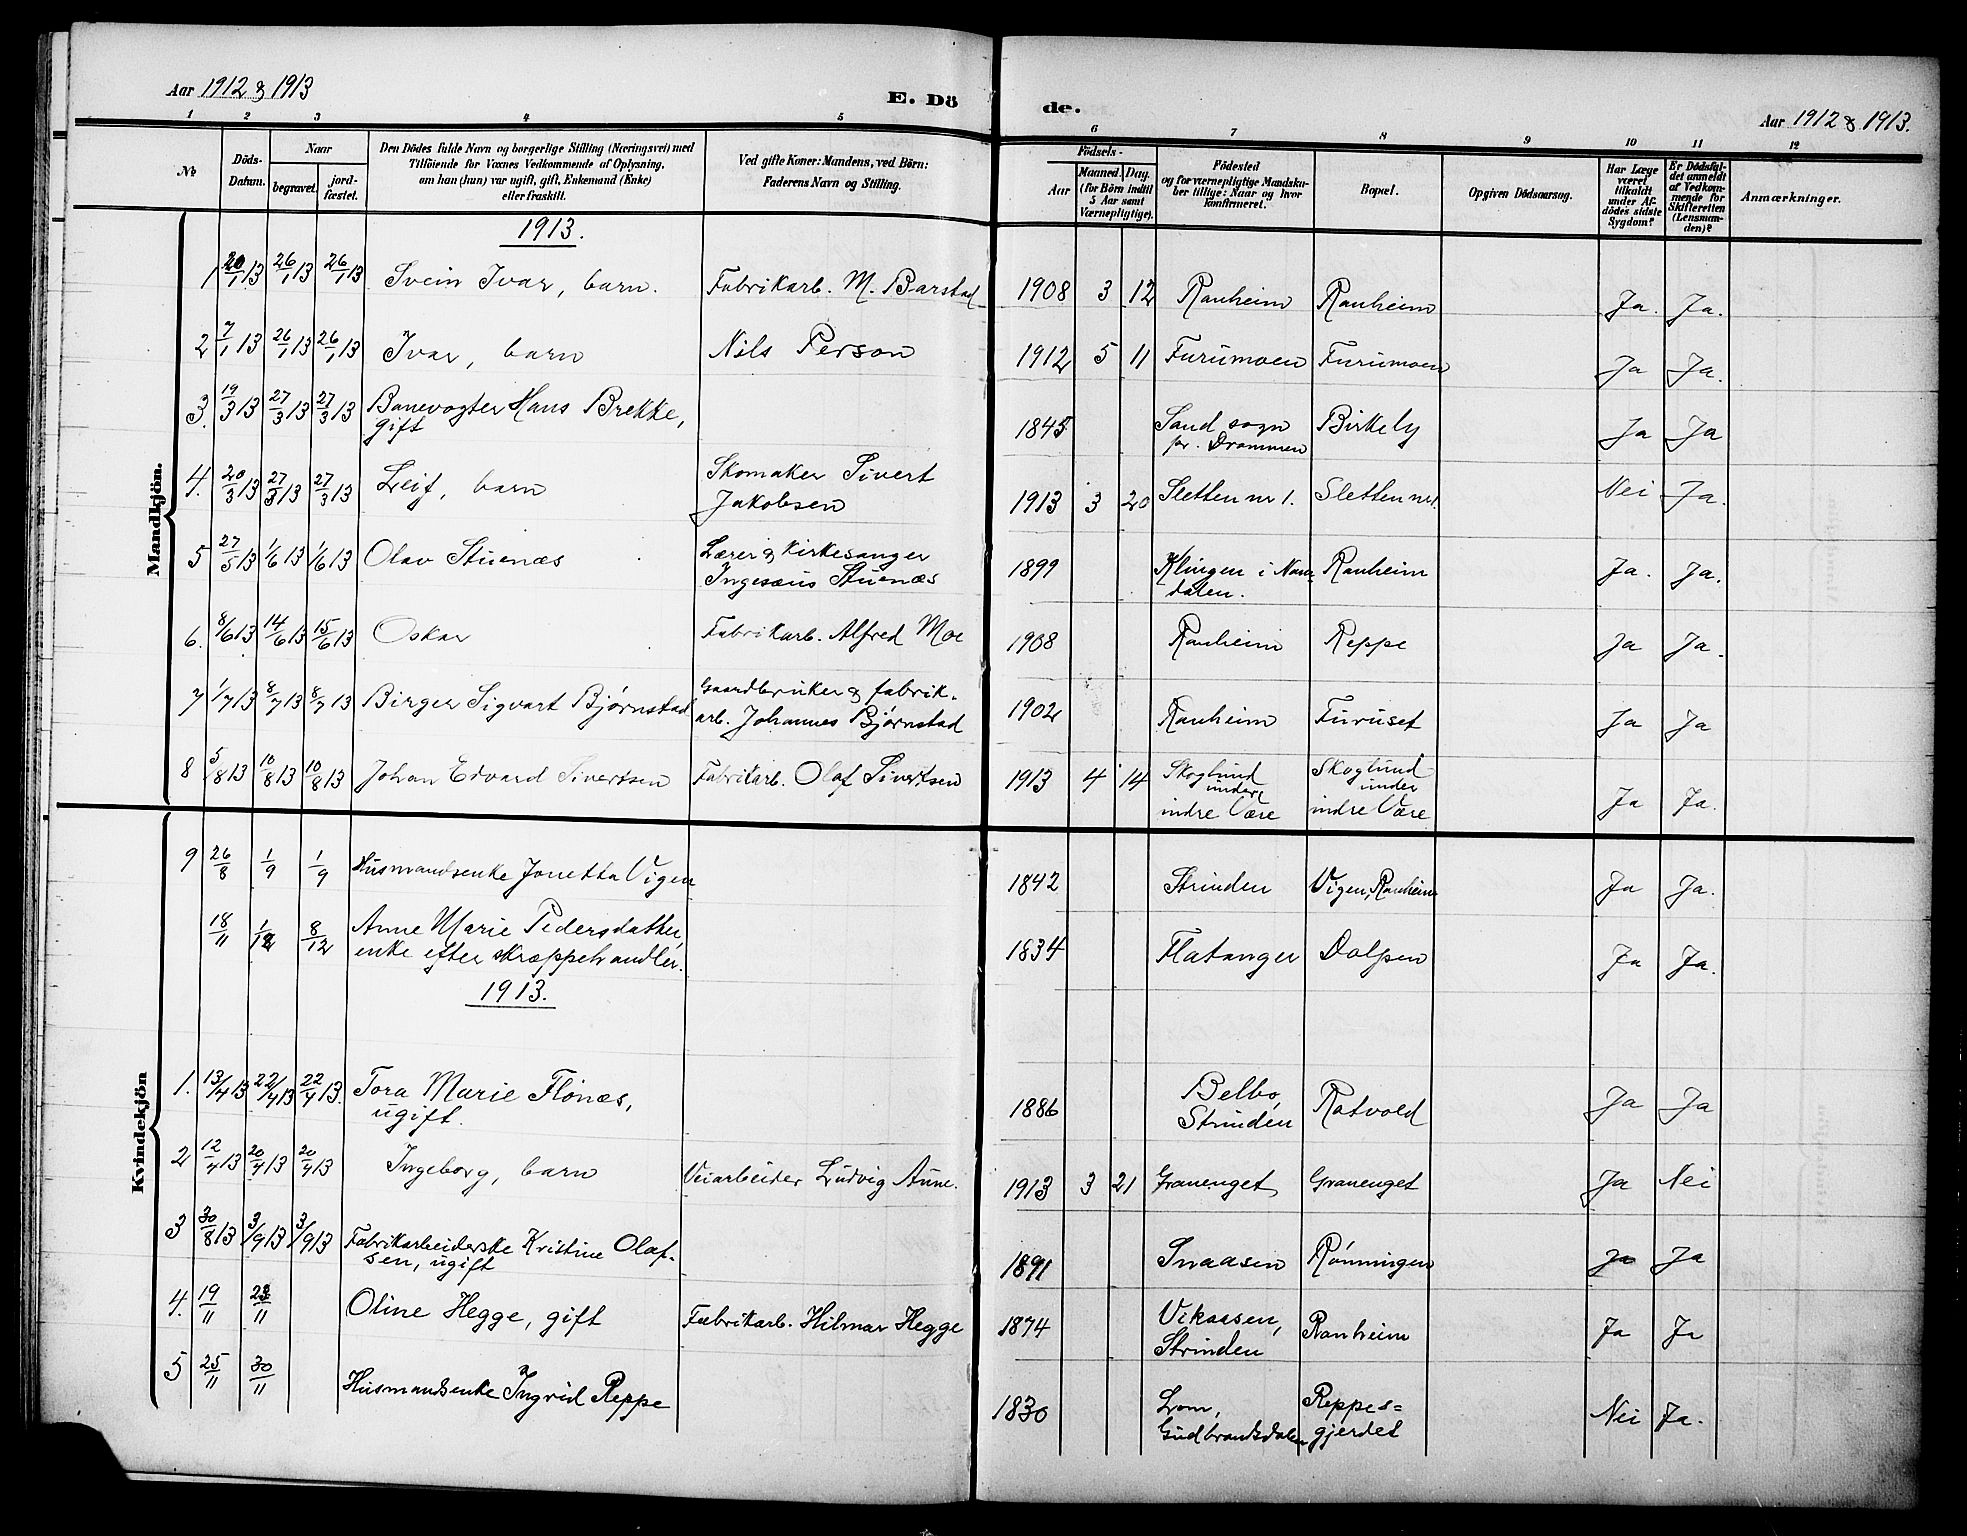 Aar 1912 & 1913
E. Dö
de.
Aar 1912 & 1913.
1 2 3 4 5
6 7 8 9 10 11 12
No
Döds-Datum.
Naar
begravet.
jord-fæstet.
Den Dödes fulde Navn og borgerlige Stilling (Næringsvei) med
Tilföiende for Voxnes Vedkommende af Oplysning,
om han (hun) var ugift, gift, Enkemand (Enke)
eller fraskilt.
Ved gifte Koner: Mandens, ved Börn:
Faderens Navn og Stilling.
Födsels-
Aar
Maaned. Dag.
(for Börn indtil
5 Aar samt
Værnepligtige).
Födested
og for værnepligtige Mandska-
ber tillige: Naar og hvor
konfirmeret.
Bopæl.
Opgiven Dödsaarsag.
Har Læge
været
tilkaldt
under Af-
dödes sidste
Sygdom?
Er Dödsfal-
det anmeldt
af Vedkom-
mende for
Skifteretten
(Lensman-
den)?
Anmærkninger.
Mandkjön.
1913.
1 20/1 13 26/1 13 26/1 13 Svein Ivar, barn. Fabrikarb. M. Barstad 1908 3 12 Ranheim Ranheim Ja. Ja.
2 7/1 13 26/1 13 26/1 13 Ivar, barn Nils Person 1912 5 11 Furumoen Furumoen Ja Ja.
3. 19/3 13 27/3 13 27/3 13 Banevogter Hans Brekke, 1845 Sand sogn Birkely Ja Ja
gift pr. Drammen
4. 20/3 13 27/3 13 27/3 13 Leif, barn Skomaker Sivert 1913 3 20 Sletten nr 1. Sletten nr 1. Nei Ja.
Jakobsen
5 27/5 13 1/6 13 1/6 13 Olav Stuenæs Lærer & kirkesanger 1899 Klingen i Nam- Ranheim Ja. Ja.
Ingesæus Stuenæs dalen.
6. 8/6 13 14/6 13 15/6 13 Oskar Fabrikarb. Alfred Moe 1908 Ranheim Reppe Ja Ja.
7 1/7 13 8/7 13 8/7 13 Birger Sigvart Bjørnstad Gaardbruker & fabrik- 1902 Ranheim Furuset Ja Ja
arb. Johannes Bjørnstad
8 5/8 13 10/8 13 10/8 13 Johan Edvard Sivertsen Fabrikarb. Olaf Sivertsen 1913 4 14 Skoglund Skoglund Ja Ja.
under under
indre Være indre Være
Kvindekjön
9 26/8 1/9 1/9 Husmandsenke Jonetta Vigen 1842 Strinden Vigen, Ranheim Ja Ja.
18/11 1/12 8/12 Anne Marie Pedersdatter, 1834 Flatanger Dalpen Ja Ja.
enke efter skræppehandler.
1913.
1. 13/4 13 22/4 13 22/4 13. Tora Marie Flönæs, 1886 Belbo, Rotvold Ja Ja
ugift. Strinden
2 12/4 13 20/4 13 20/4 13 Ingeborg, barn Veiarbeider Ludvig Aune. 1913 3 21 Granenget Granenget Ja Nei
3 30/8 13 3/9 13 3/9 13 Fabrikarbeiderske Kristine Olaf- 1891 Snaasen Rønningen Ja Ja
sen, ugift
4. 19/11 23/11 Oline Hegge, gift Fabrikarb. Hilmar Hegge 1874 Vikaasen, Ranheim Ja Ja
Strinden
5 25/11 30/11 Husmandsenke Ingrid Reppe 1830 Lom, Reppes= Nei Ja.
Gudbrandsdalen gjerdet